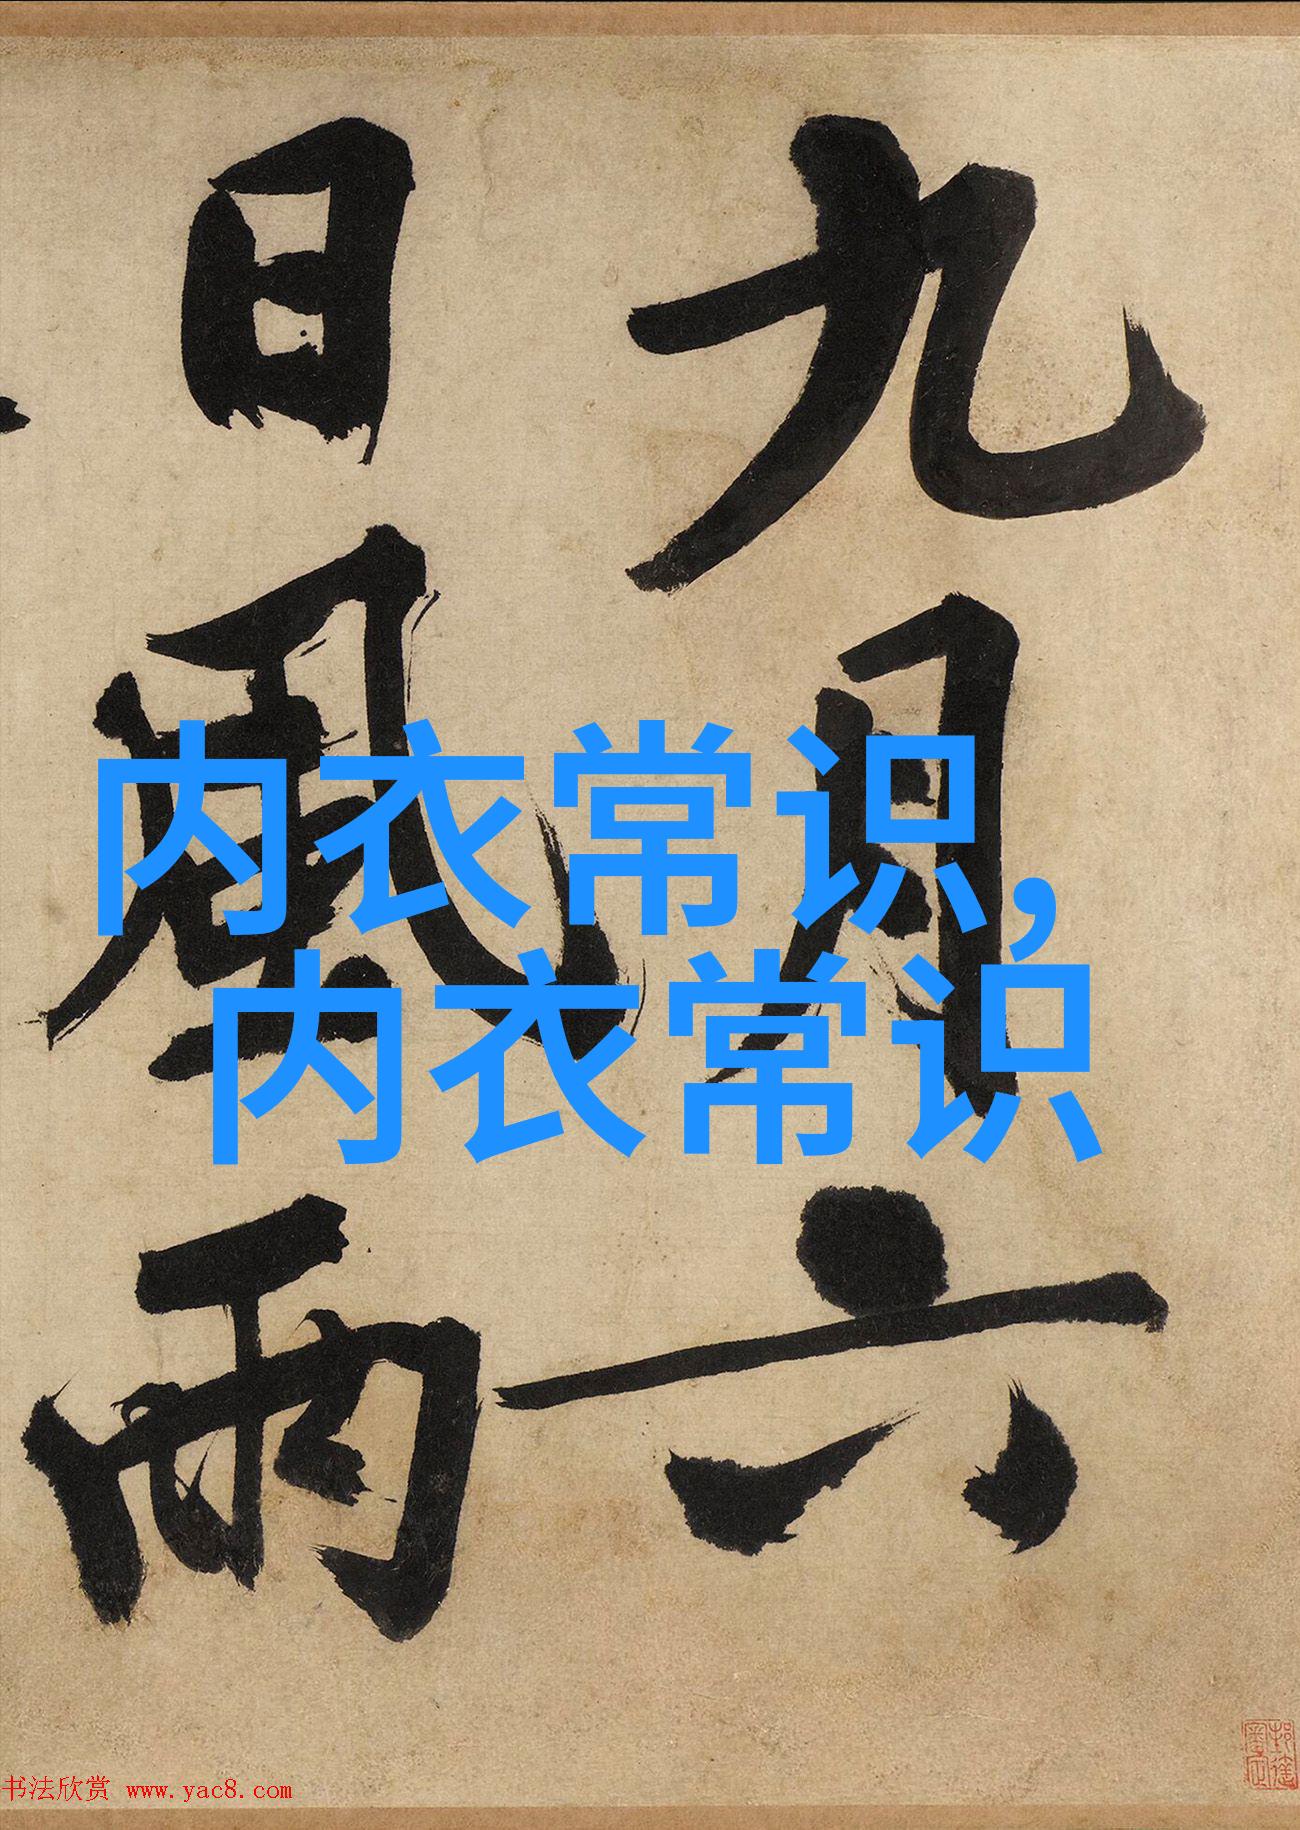 九月六
日風雨
内衣常识,
内衣常识
书法欣赏 www.yac8.com